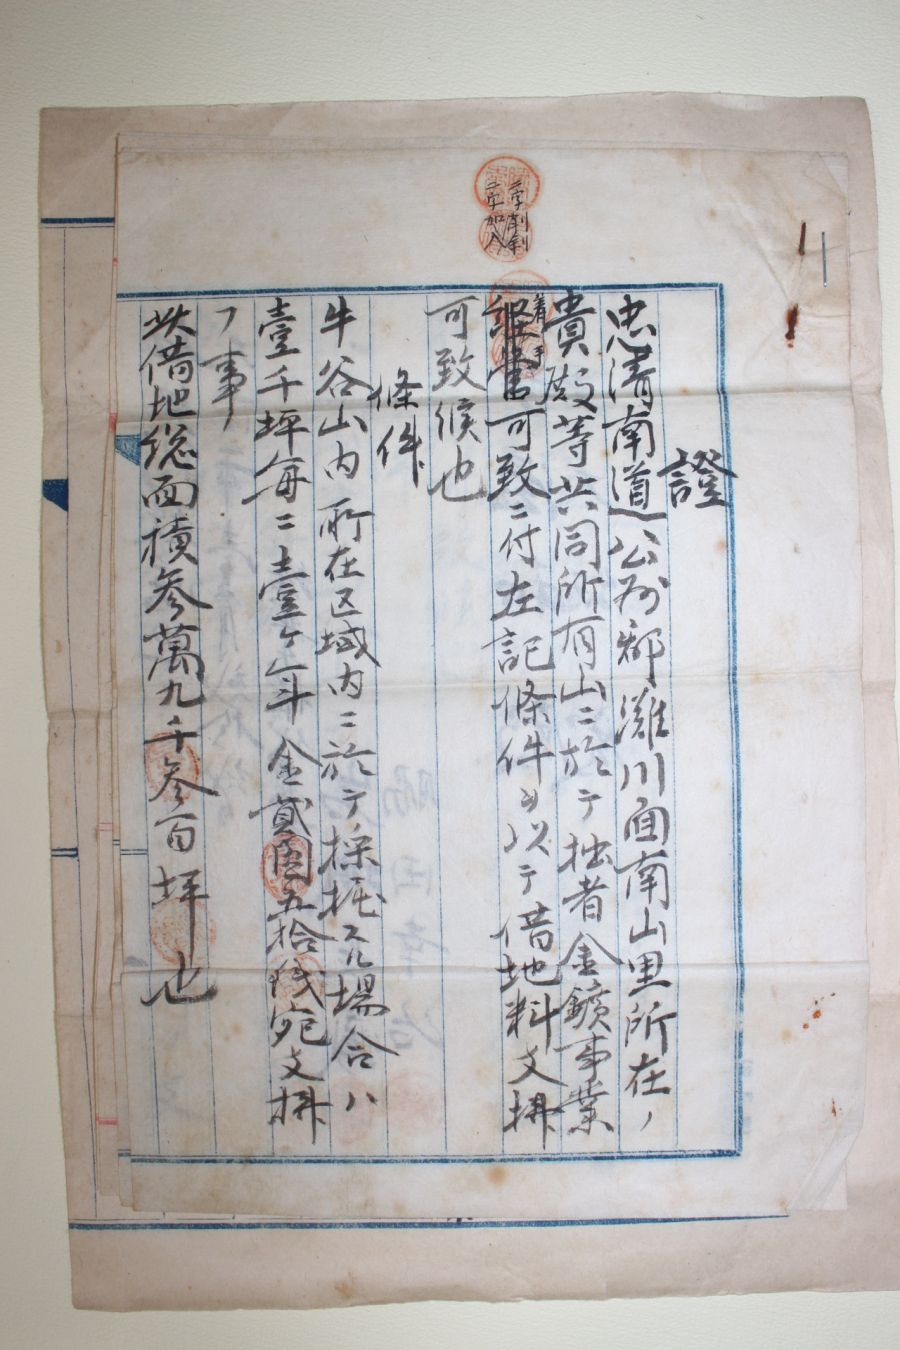 二字削剣
二字加入
證
忠清南道公州郡灘川面南山里所在ノ
貴殿等共同所有山ニ於テ拙者金鑛事業
着手
可致ニ付左記條件ヲ以テ借地料支拂
可致候也
條件
牛谷山内所在区域内ニ於テ採掘スル場合ハ
壹千坪毎ニ壹ヶ年金貳圓五拾銭宛支拂
ノ事
此借地総面積参萬九千参百坪也